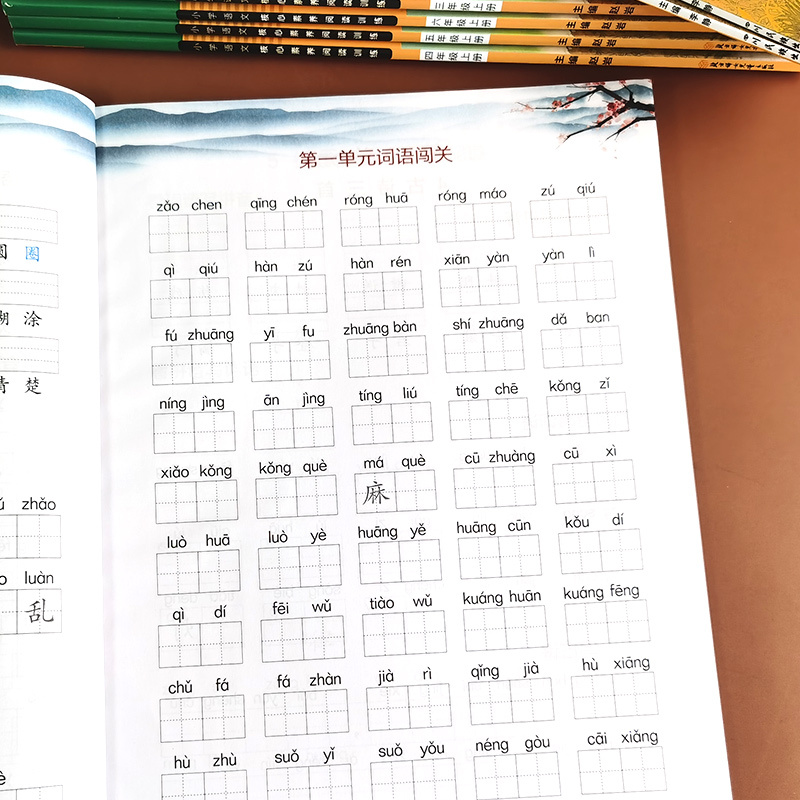 小学语文 核心素养阅读训练 三年级上册 主编 赵岩
小学语文 核心素养阅读训练 六年级上册 主编 赵岩
小学语文 核心素养阅读训练 五年级上册 主编 赵岩
小学语文 核心素养阅读训练 四年级上册 主编 赵岩
圈
涂
楚
zhǎo
luàn
乱
第一单元词语闯关
zǎo chen qīng chén róng huā róng máo zú qiú
qì qiú hàn zú hàn rén xiān yàn yàn lì
fú zhuāng yī fu zhuāng bàn shí zhuāng dǎ ban
níng jìng ān jìng tíng liú tíng chē kǒng zǐ
xiǎo kǒng kǒng què má què cū zhuàng cū xì
麻
luò huā luò yè huāng yě huāng cūn kǒu dí
qì dí fēi wǔ tiào wǔ kuáng huān kuáng fēng
chǔ fá fá zhàn jià rì qǐng jià hù xiāng
hù zhù suǒ yǐ suǒ yǒu néng gòu cāi xiǎng